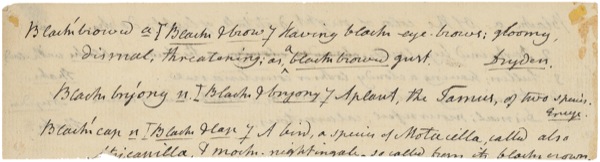 Black'browed a. [Black & brow] Having black eye-brows; gloomy,
dismal; threatening; as, a blackbrowed gust. Dryden.
Black bryony n. [Black & bryony] A plant, the Tamus, of two species.
Encyc.
Black'cap n [Black & cap] A bird, a species of Motacilla, called also
& mock-nightingale, so called from its black crown